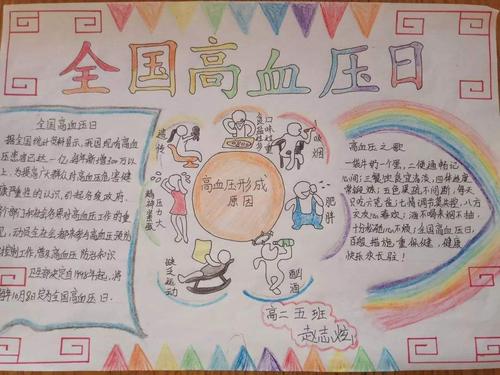 全国高血压日
全国高血压日
据全国统计资料显示,我国现有高血
压患者已达一亿,每年新增300万以
上,为提高广大群众对高血压危害健
康严重性的认识,引起各级政府、
各个部门和社会各界对高血压工作的重
视,动员全社会都来参与高血压预防
控制工作,普及高血压防治知识
卫生部决定自1998年起,将
每年10月8日定为全国高血压日。
遗传
口味过重
食盐过多
吸烟
肥胖
酗酒
缺乏运动
压力大
精神紧张
高血压形成
原因
高血压之歌
一袋牛奶一个蛋,二便通畅记
心间;三餐饮食宜清淡,四体勤度
常锻炼;五色果蔬不间断,每天
只吃六克盐;七情调节莫失控,八方
交流心态好;酒不喝来烟不抽,
十分随心不烦;全国高血压日,
百般措施重保健,健康
快乐永长驻!
高二五班
赵志炫